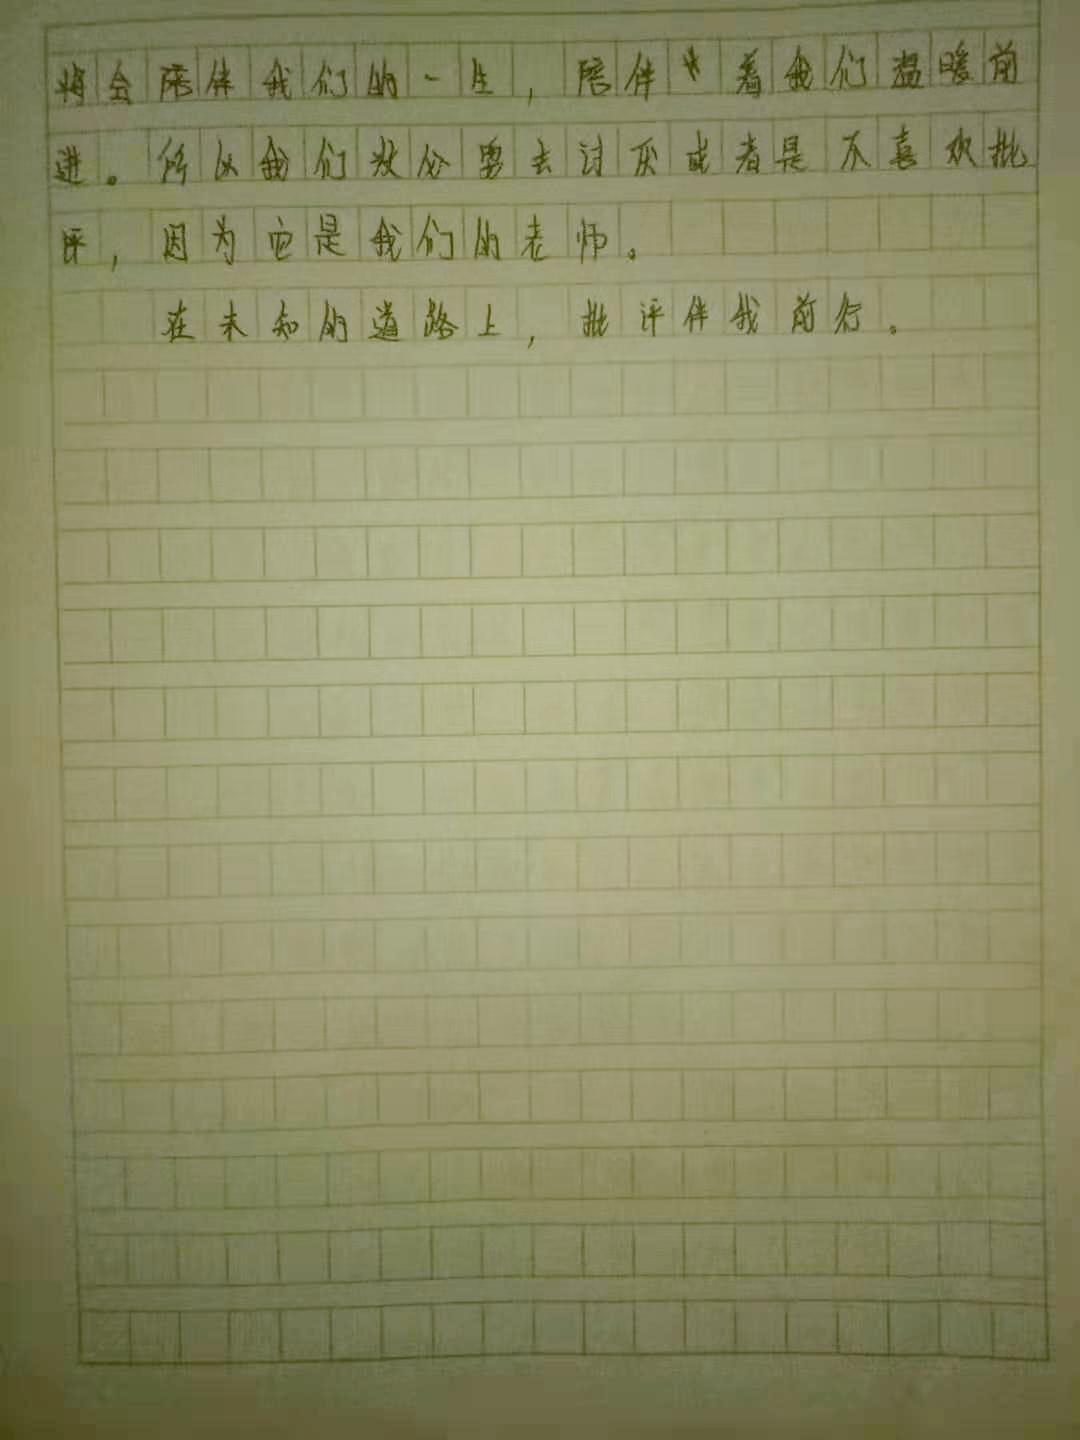 将会陪伴我们的一生，陪伴着我们温暖前
进。所以我们没必要去讨厌或者是不喜欢批
评，因为它是我们的老师。
在未知的道路上，批评伴我前行。